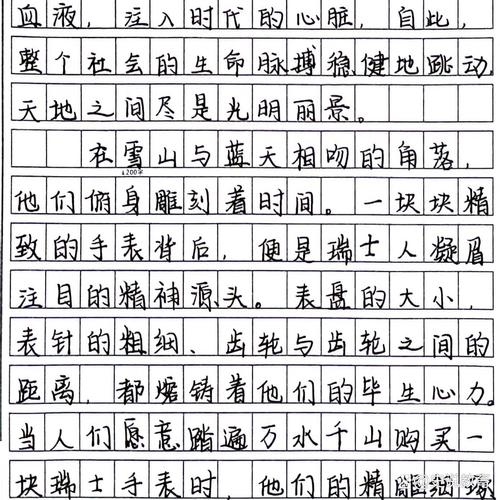 血液，注入时代的心脏，自此，
整个社会的生命脉搏稳健地跳动，
天地之间尽是光明丽景。
在雪山与蓝天相吻的角落，
▲200字
他们俯身雕刻着时间。一块块精
致的手表背后，便是瑞士人凝眉
注目的精神源头。表盘的大小，
表针的粗细、齿轮与齿轮之间的
距离，都熔铸着他们的毕生心力。
当人们愿意踏遍万水千山购买一
块瑞士手表时，他们的精雕细琢